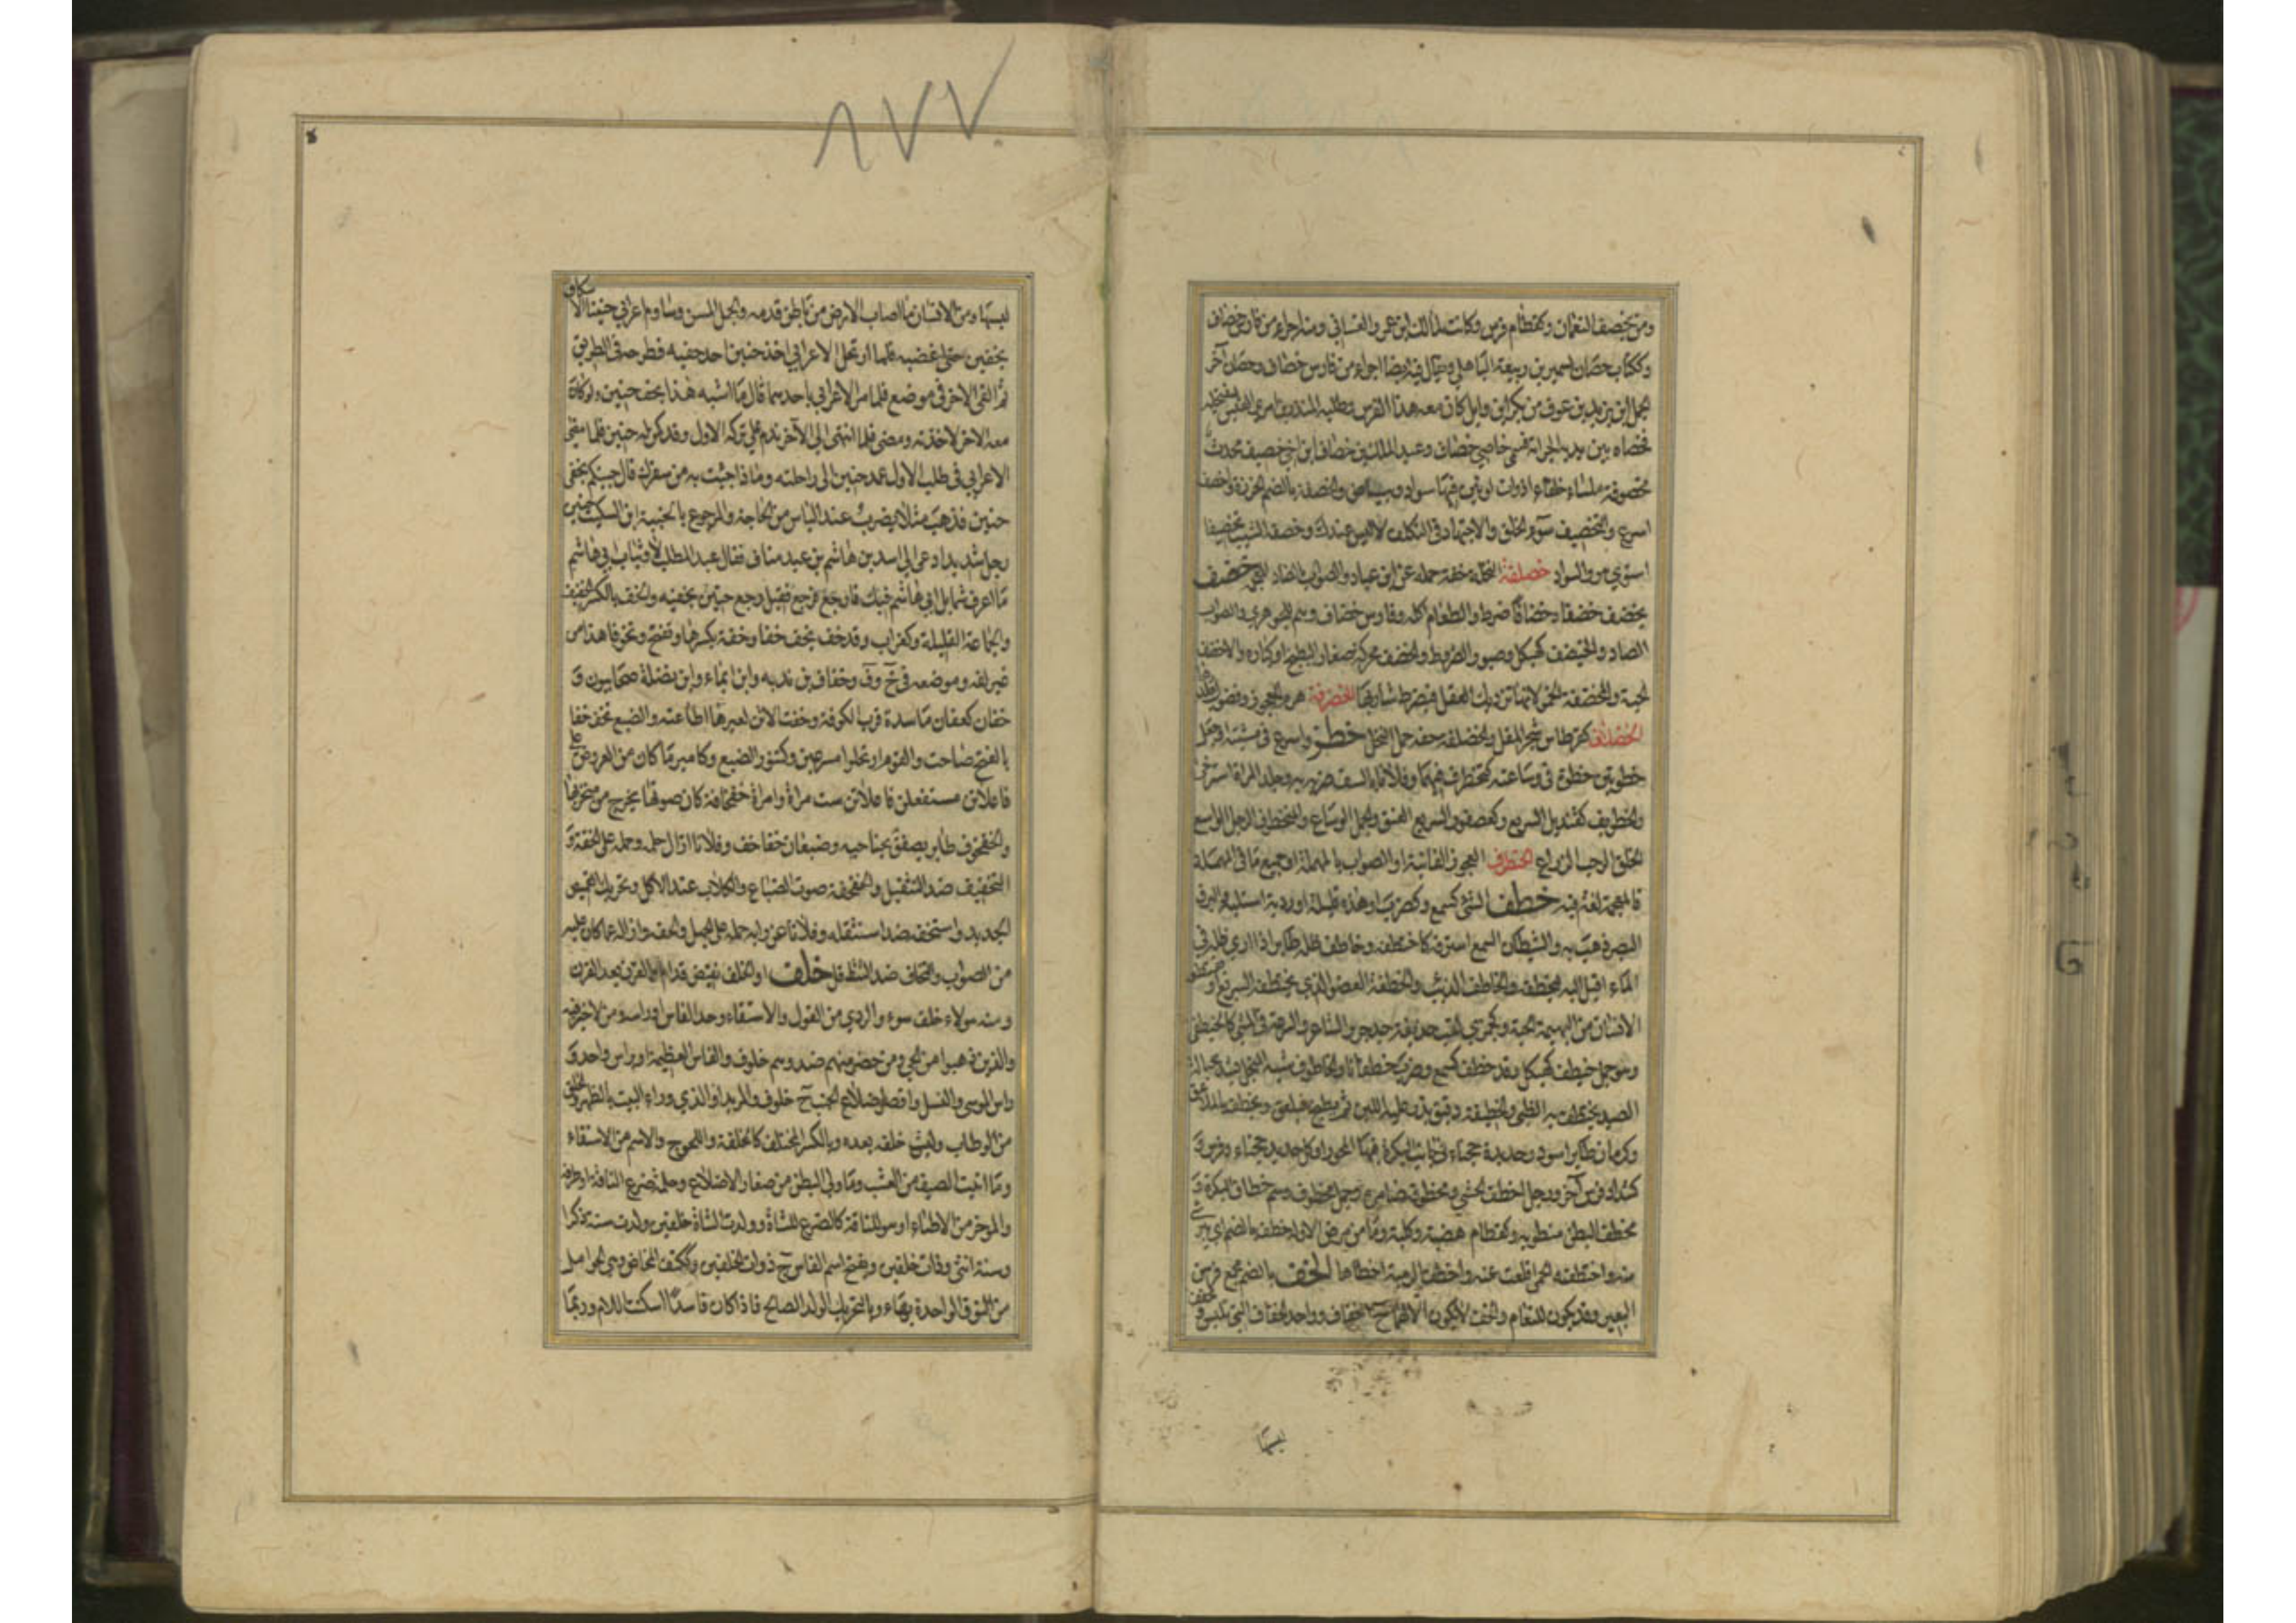 ومن تخصف النعمان وكقطام فرس وكانت لمالك ابن عمرو الغساني ومنه اجراء من فارس خصاف
وككتاب حصان لسمير بن ربيعة الباهلي ويقال فيه ايضا اجراء من فارس خصاف وحصان آخر
لحمل ابن يزيد بن عوف من بكر ابن وايل كان معه هذا الفرس وطلبه المنذر بن امرئ القيس ليفتحله
فخصاه بين يديه لجراته فسمي خاصي خصاف وعبد الملك بن خصاف ابن اخي خصيف محدث
مخصوفة ملساء خلقاء او ذات لونين فيها سواد وبياض والخصفة بالضم الخرزة واخصف
اسرع والتخصيف سوء الخلق والاجتهاد في التكلف لما ليس عندك وخصفه الشيب تخصيفا
استوي هو والسواد خصلفة النخلة خفة حمله عن ابن عباد والصواب بالضاد المعجمة خضف
يخضف خضفا وخضافا ضرط والطعام اكله وفارس خضاف وهم للجوهري والصواب
الصاد والخيضف كهيكل وصبور الضروط والخضف محركة صغار البطيخ او كباره والاخضف
الحية والمخضفة الخمر لانها تزيل العقل فيضرط شاربها الخضرفة هرم العجوز وفضول جلدها
الخضلاف كقرطاس شجر المقل والخضلفة خفة حمل النخل خطرف اسرع في مشيته او جعل
خطوتين خطوة في وساعته كتخطرف فيهما وفلانا بالسيف ضربه به وجلد المراة استرخى
والخطريف كقنديل السريع وكعصفور السريع العنق والجمل الوساع والمتخطرف الرجل الواسع
الخلق الرحب الذراع الخنظرف العجوز الفانية او الصواب بالمهملة او جميع ما في المهملة
فالمعجمة لغة فيه خطف الشئ كسمع وكضرب او هذه قليلة او ردية استلبه والبرق
البصر ذهب به والشيطان السمع استرقه كاختطفه وخاطف ظله طاير اذا راي ظله في
الماء اقبل اليه ليخطفه والخاطف الذئب والخطفة العضو الذي يختطفه السبع او
الانسان من البهيمة الحية وكجمزي لقب حذيفة جد جرير الشاعر والسرعة في المشي كالخيطفي
وجمل خيطف كهيكل وقد خطف كسمع وضرب خطفانا والخاطوف شبه المنجل يشد بحبالة
الصيد يختطف به الظبي والخطيفة دقيق يذر عليه اللبن ثم يطبخ فيلعق ويختطف بالملاعق
وكرمان طاير اسود وحديدة حجناء في جانبي البكرة فيها المحور او كل حديدة حجناء وفرس و
كشداد فرس آخر ورجل اخطف الحشي ومخطوفه ضامره وجمل مخطوف وسم خطاف البكرة و
مخطف البطن منطويه وكقطام هضبة وكلبة وما من مرض الا وله خطف بالضم اي يبرأ
منه واختطفته الحمي اقلعت عنه واخطف الرمية اخطاها الخف بالضم مجمع فرسن
البعير وقد يكون للنعام والخف لا يكون الا لهما ج اخفاف وواحد الخفاف التي تلبس و
لبسها
٨٧٧
لبسها ومن الانسان ما اصاب الارض من باطن قدمه والجمل المسن وساوم اعرابي حنينا الاسكاف
بخفين حتى اغضبه فلما ارتحل الاعرابي اخذ حنين احد خفيه فطرحه في الطريق
ثم القى الاخر في موضع فلما مر الاعرابي باحدهما قال ما اشبه هذا بخف حنين ولو كان
معه الاخر لاخذته ومضى فلما انتهى الي الآخر ندم علي تركه الاول وقد كمن له حنين فلما مضي
الاعرابي في طلب الاول عمد حنين الى راحلته وماذا جئت به من سفرك قال جيتكم بخفي
حنين فذهب مثلا يضرب عند الياس من الحاجة والرجوع بالخيبة ابن السكيت حنين
رجل شديد ادعى الي اسد بن هاشم بن عبد مناف فقال عبد المطلب لا وثياب ابي هاشم
ما اعرف شمايل ابي هاشم فيك فارجع فرجع فقيل رجع حنين بخفيه والخف بالكسر الخفيف
والجماعة القليلة وكغراب وقد خف يخف خفا وخفة بكسرها وتفتح وتخوفا هذا من
غير لفه وموضعه في خ و ف وخفاف بن ندبه وابن ايماء وابن نضلة صحابيون و
خفان كعفان ماسدة قرب الكوفة وخفت الاتن لعيرها اطاعته والضبع تخف خفا
بالفتح صاحت والقوم ارتحلوا مسرعين وكتنور الضبع وكامير ما كان من العروض علي
فاعلاتن مستفعلن فاعلاتن ست مراة وامراة خفخافة كان صوتها يخرج من منخريها
والخفخوف طاير يصفق بجناحيه وضبعان خفاخف وفلانا ازال حلمه وحمله على الخفة و
التخفيف ضد التثقيل والخفخفة صوت الضباع والكلاب عند الاكل وتحريك القميص
الجديد واستخفه ضد استثقله وفلانا عن رايه حمله على الجهل والخفة وازاله عما كان عليه
من الصواب والتخاف ضد التثاقل خلف او الخلف نقيض قدام والقرن بعد القرن
ومنه هولاء خلف سوء والردي من القول والاستقاء وحد الفاس او راسه ومن لا خير فيه
والذين ذهبوا من الحي ومن حضر منهم ضد وهم خلوف والفاس العظيمة او براس واحد و
راس الموسى والنسل واقصر اضلاع الجنب ج خلوف والمربد او الذي وراء البيت والظهر والخلق
من الوطاب ولبث خلفه بعده وبالكسر المختلف كالخلفة واللجوج والاسم من الاستقاء
وما انبت الصيف من العشب وما ولي البطن من صغار الاضلاع وحلمة ضرع الناقة او طرفه
والموخر من الاطباء او هو للناقة كالضرع للشاة وولدت الشاة خلفين ولدت سنة ذكرا
وسنة انثى وذات خلفين ويفتح اسم الفاس ج ذوات الخلفين وككتف المخاض وهي الحوامل
من النوق الواحدة بهاء وبالتحريك الولد الصالح فاذا كان فاسدا اسكنت اللام وربما